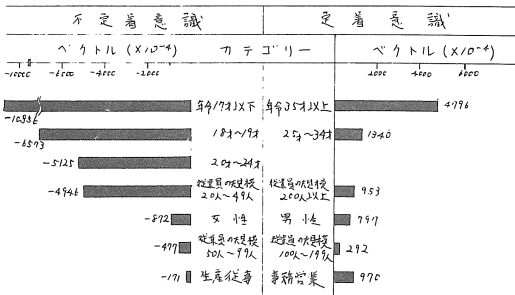 不定着意識 定着意識
ベクトル (×10⁻⁴) カテゴリー ベクトル (×10⁻⁴)
-10000 -6000 -4000 -2000 2000 4000 6000
年令17才以下 年令35才以上 4796
-10936
18才~19才 25才~34才 1340
-6573
-5125 20才~24才
-4946 従業員の規模 20人~49人 従業員の規模 200人以上 953
-872 女性 男性 797
-477 従業員の規模 50人~99人 従業員の規模 100人~199人 292
-171 生産従事 事務営業 970